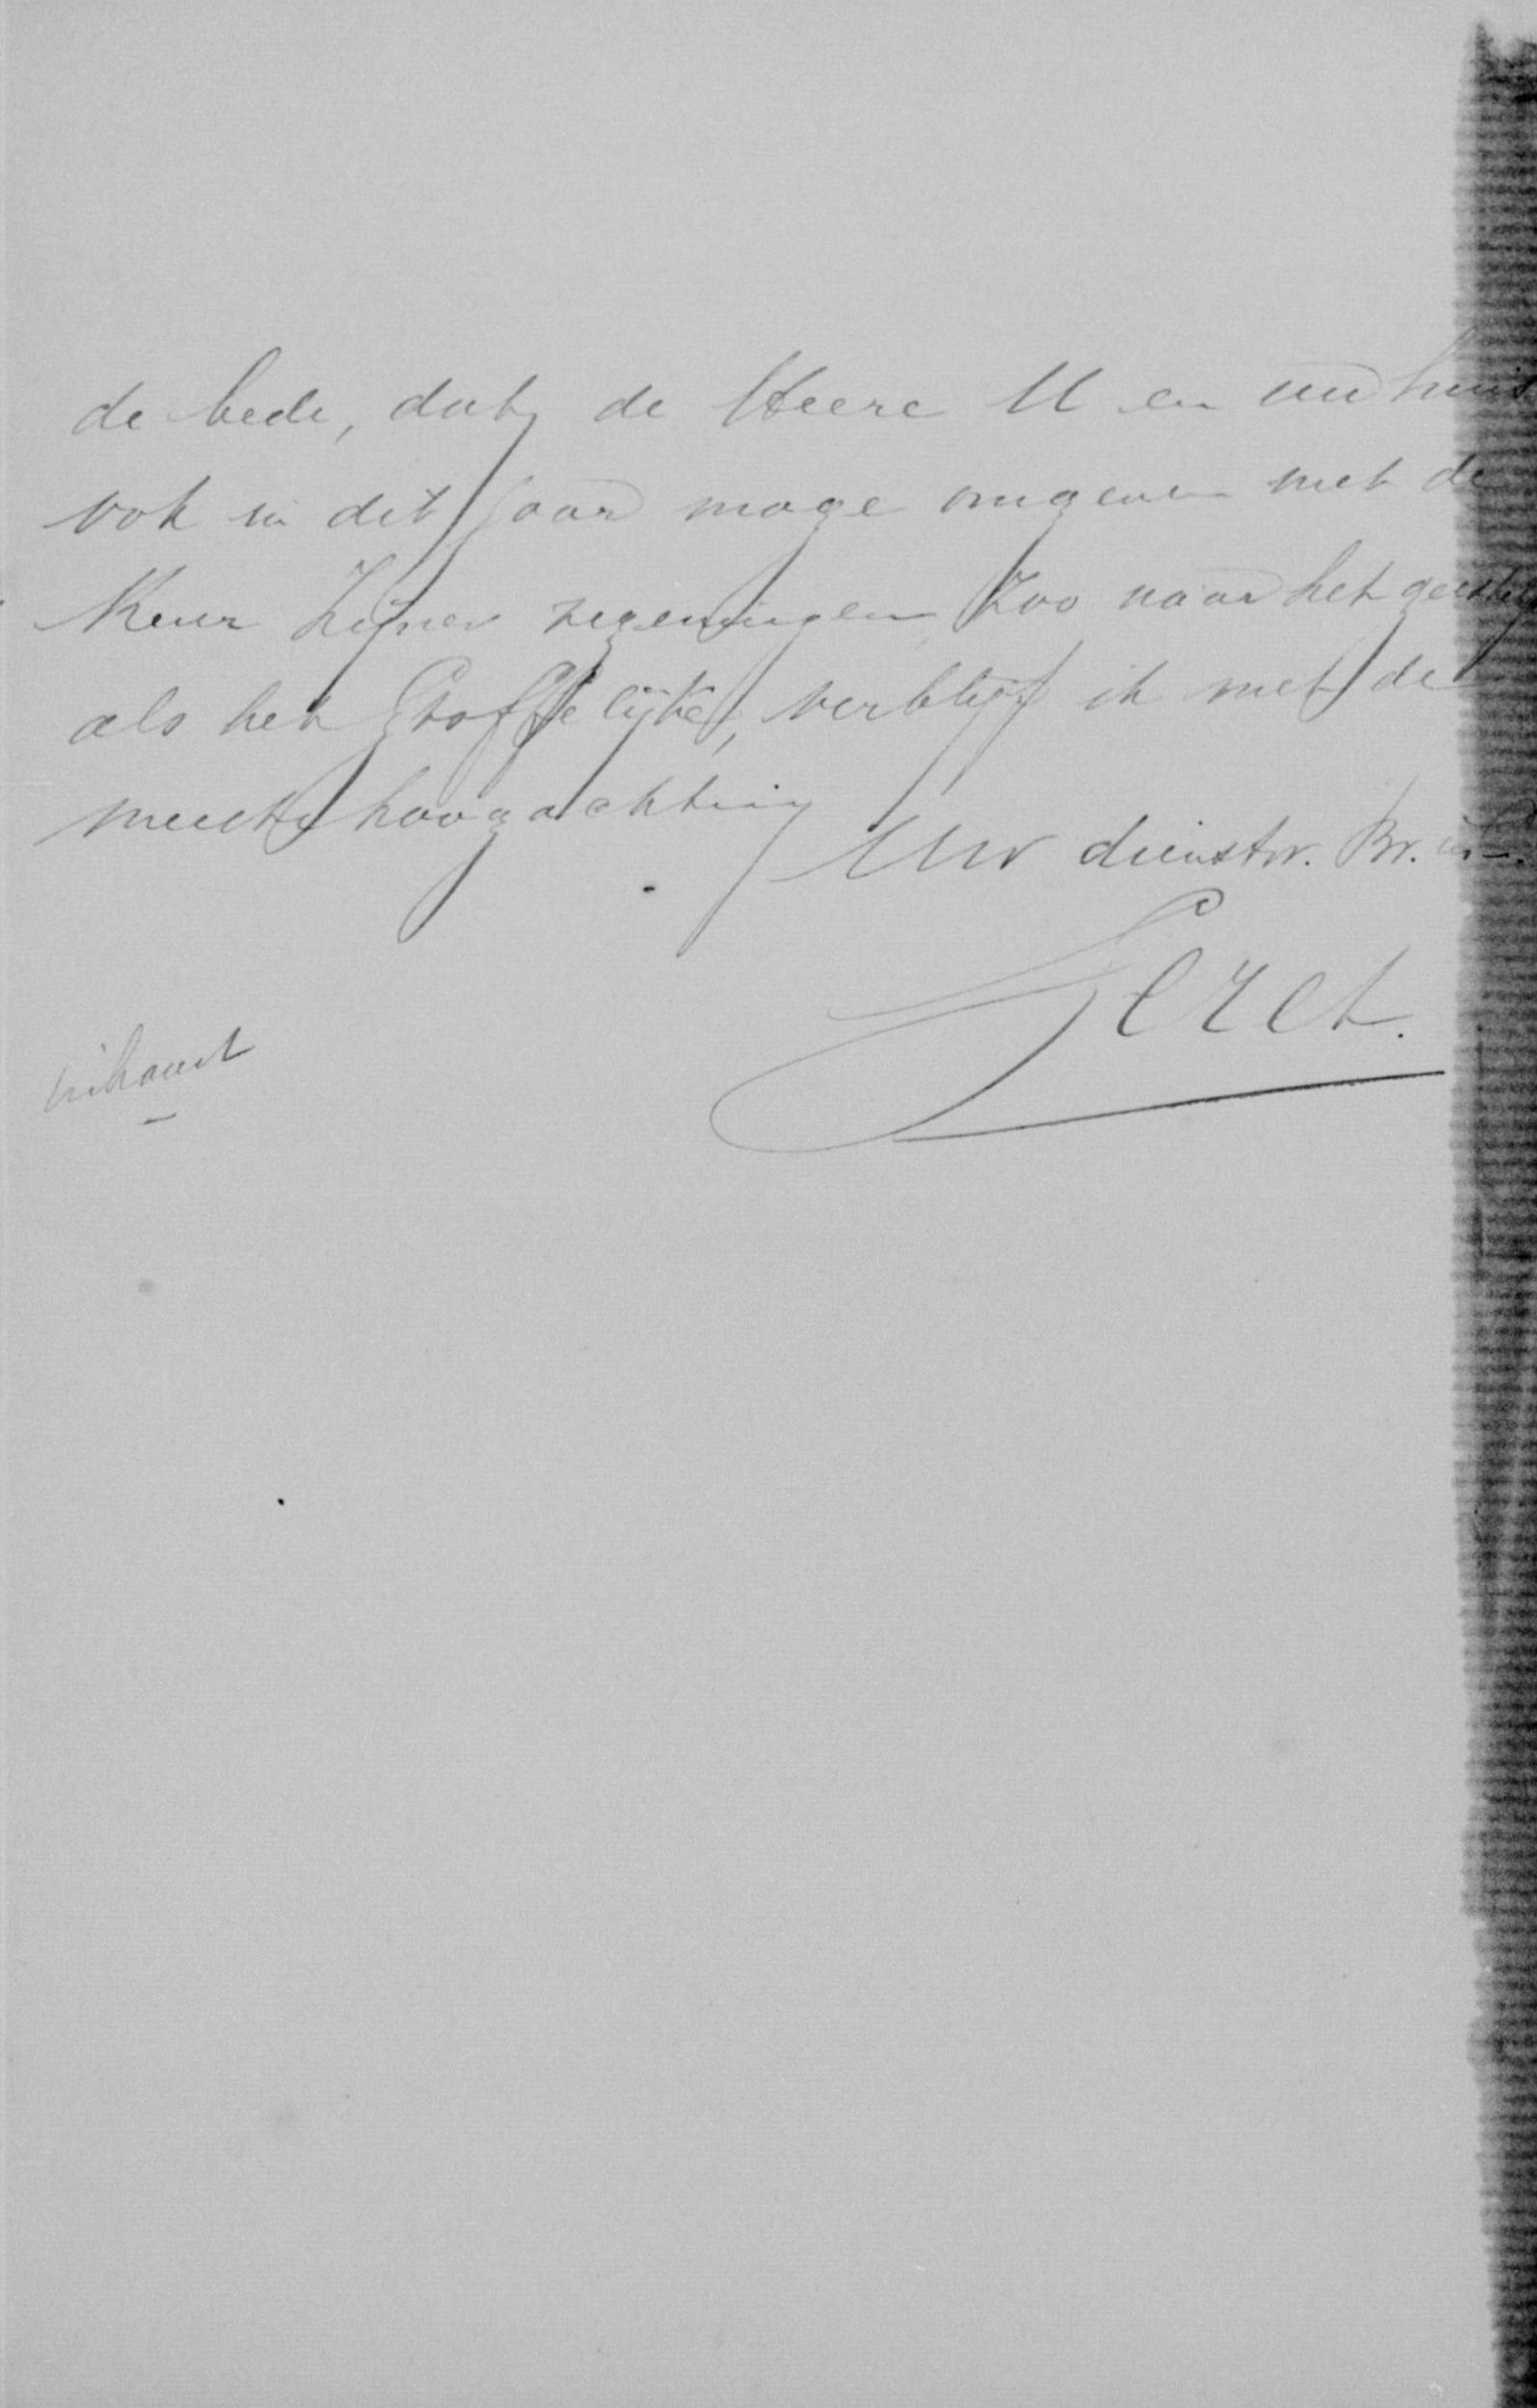 de bede, dat de Heere U en uw huis
ook in dit Jaar moge omgeven met de
Keur Zijner zegeningen, Zoo naar het geestelij
als het Stoffelijke, verblijf ik met de
meeste hoogachting
Uw dienstw. Br. in
Geret.